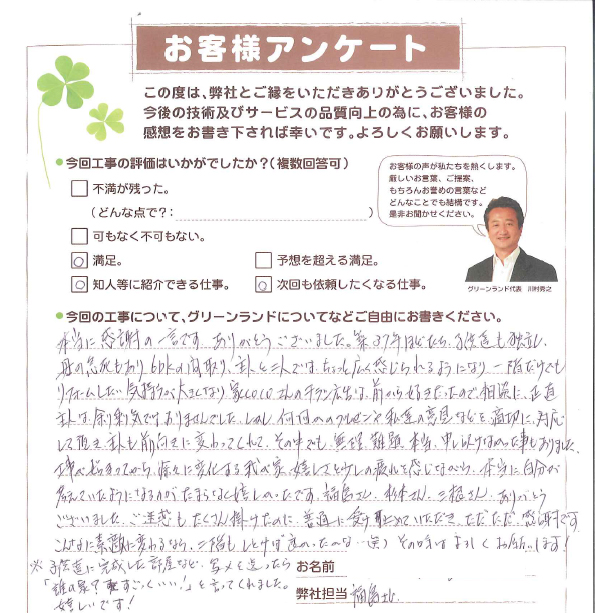 お客様アンケート
この度は、弊社とご縁をいただきありがとうございました。
今後の技術及びサービスの品質向上の為に、お客様の
感想をお書き下されば幸いです。よろしくお願いします。
今回工事の評価はいかがでしたか？（複数回答可）
不満が残った。
（どんな点で？：　）
可もなく不可もない。
満足。
予想を超える満足。
知人等に紹介できる仕事。
次回も依頼したくなる仕事。
お客様の声が私たちを熱くします。
厳しいお言葉、ご提案、
もちろんお誉めの言葉など
どんなことでも結構です。
是非お聞かせください。
グリーンランド代表　川村秀之
今回の工事について、グリーンランドについてなどご自由にお書きください。
本当に感謝の一言です。ありがとうございました。築37年ほどたち、子供達も独立し、
もあり 6DKの間取り、主人と二人では、ちょっと広く感じられるようになり 一階だけでも
リフォームしたい気持ちが大きくなり さんのチラシ、広告は、前から好きだったので相談に、正直
主人は、余り乗気ではありませんでした。しかし、何回かのプレゼンや私達の意見などを適切に、対応
して頂き、主人も前向きに変わってくれて、その中でも、無理 難題 本当、申し訳なかった事もありました。
工事が始まってから、徐々に変化する我が家、嬉しくて少しの疲れを感じながら、本当に自分が
考えていたようになるのがたまらなく嬉しかったです。福島さん、松本さん、三根さん、ありがとう
ございました。ご迷惑もたくさん掛けたのに、普通に受け止めていただき、ただただ、感謝です
こんなに素敵に変わるなら、二階もしとけば良かったかな（笑）その時はよろしくお願いします！
※子供達に完成した部屋など、写メを送ったら
「誰の家？すごっくいい！」と言ってくれました。
嬉しいです！
お名前
弊社担当 福島